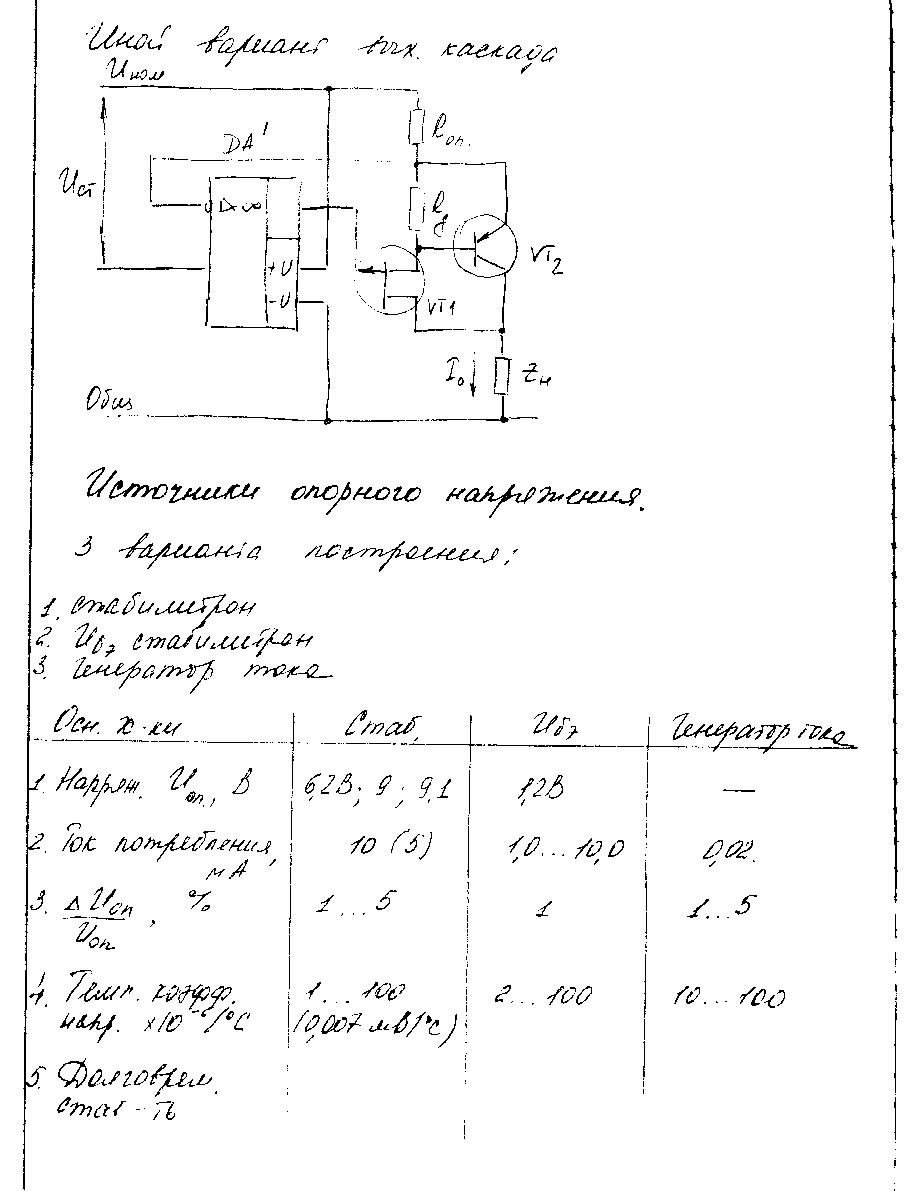 Иной вариант вых. каскада
Uном
DA'
Rоп.
Uст
▷∞
Rб
+U
-U
VT1
VT2
I₀
Zн
Общ
Источники опорного напряжения.
3 варианта построения:
1. стабилитрон
2. Uбэ стабилитрон
3. Генератор тока
Осн. х-ки Стаб. Uбэ Генератор тока
1. Напряж. Uоп., В 6,2В; 9; 9,1 1,2В —
2. Ток потребления, мА 10 (5) 1,0...10,0 0,02.
3. ΔUоп/Uоп, % 1...5 1 1...5
4. Темп. коэфф. 1...100 2...100 10...100
напр. ×10⁻⁶/°С (0,007 мВ/°С)
5. Долговрем.
стаб-ть